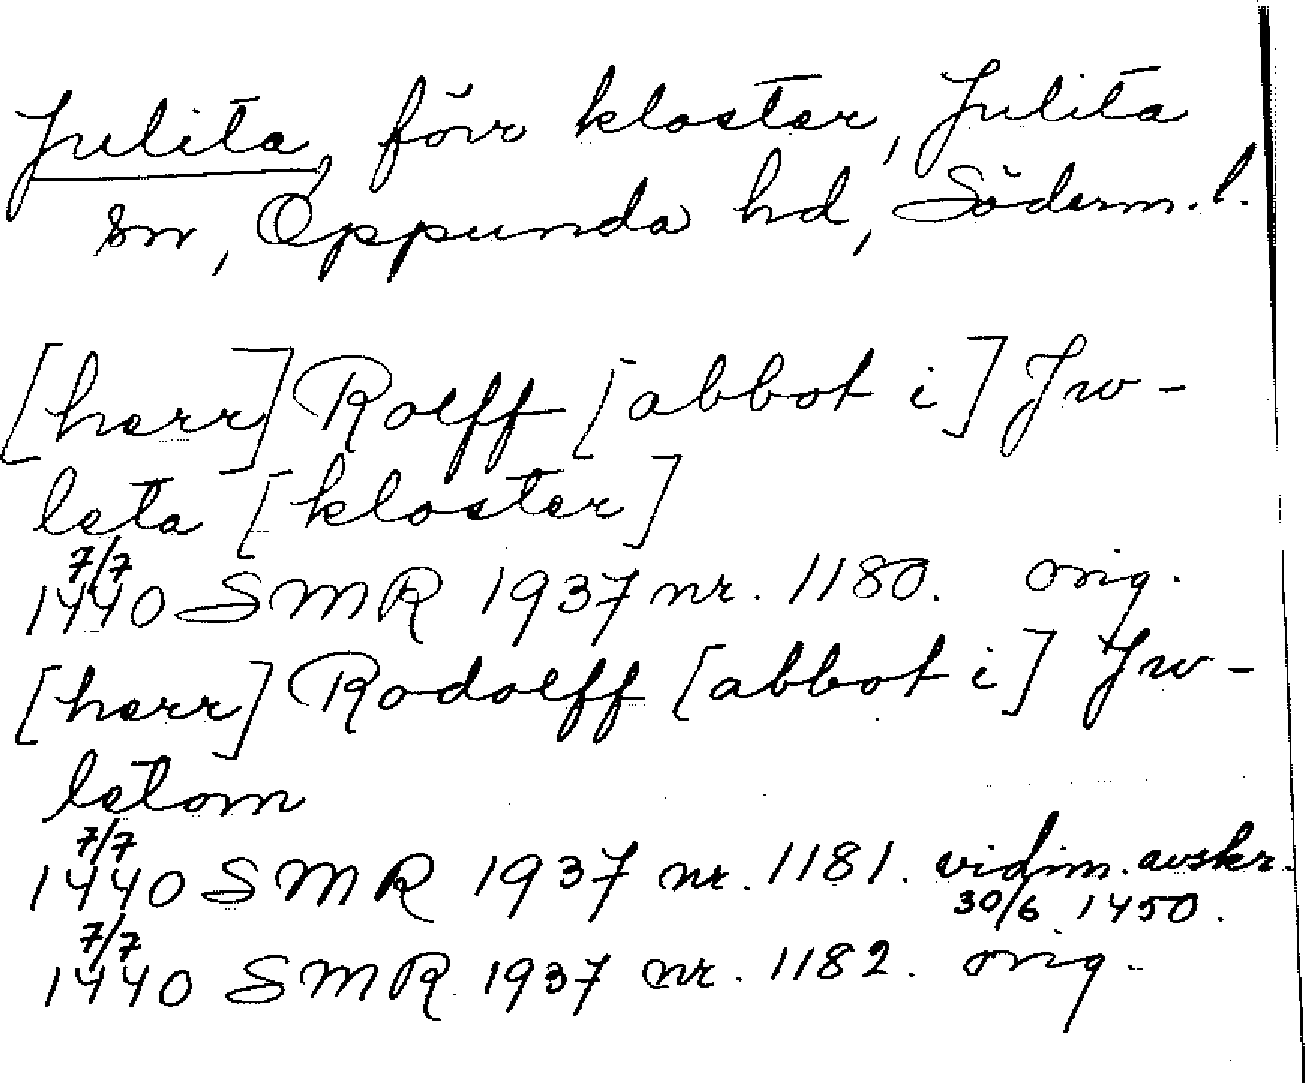 Julita, förr kloster, Julita
sn, Oppunda hd, Söderm.l.
[herr] Rolff [abbot i] Jw-
leta [kloster]
7/7
1440 SMR 1937 nr. 1180. orig.
[herr] Rodolff [abbot i] Jw-
letom
7/7
1440 SMR 1937 nr. 1181. vidim. avskr.
30/6 1450.
7/7
1440 SMR 1937 nr. 1182. orig.